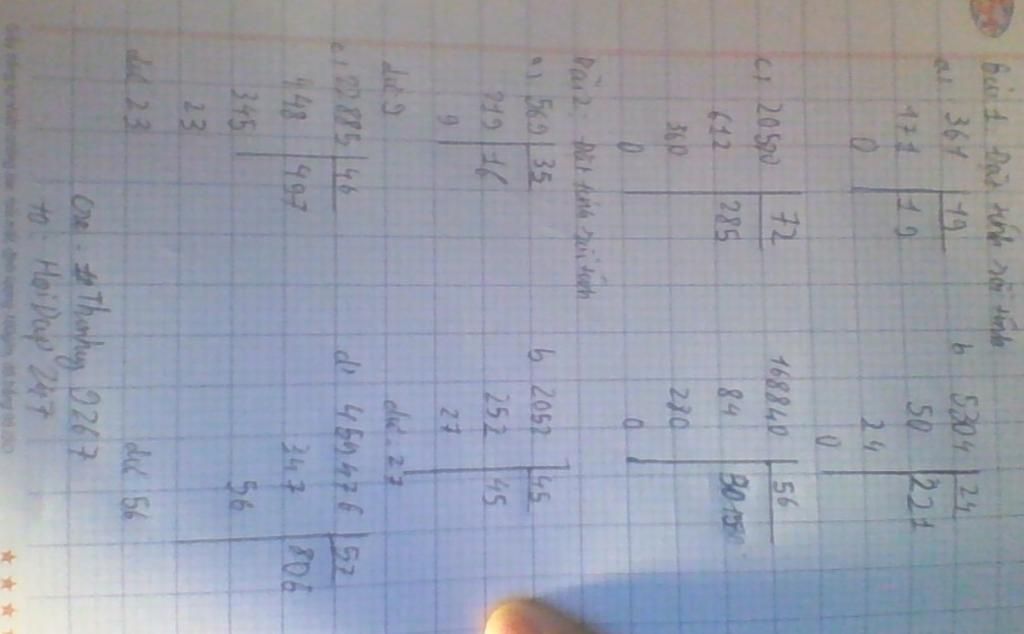 Bài 1 Đặt tính rồi tính
a) 361 19
171 19
0
b 5304 24
50 221
24
0
c) 20520 72
612 285
360
0
16840 56
84
280
0
Bài 2: Đặt tính rồi tính
a) 569 35
219 16
9
dư 9
b 2052 45
252 45
27
dư: 27
c) 22885 46
448 497
345
23
dư 23
d) 46 57
347 806
56
dư 56
Thonky 9267
Hoi Dap 247